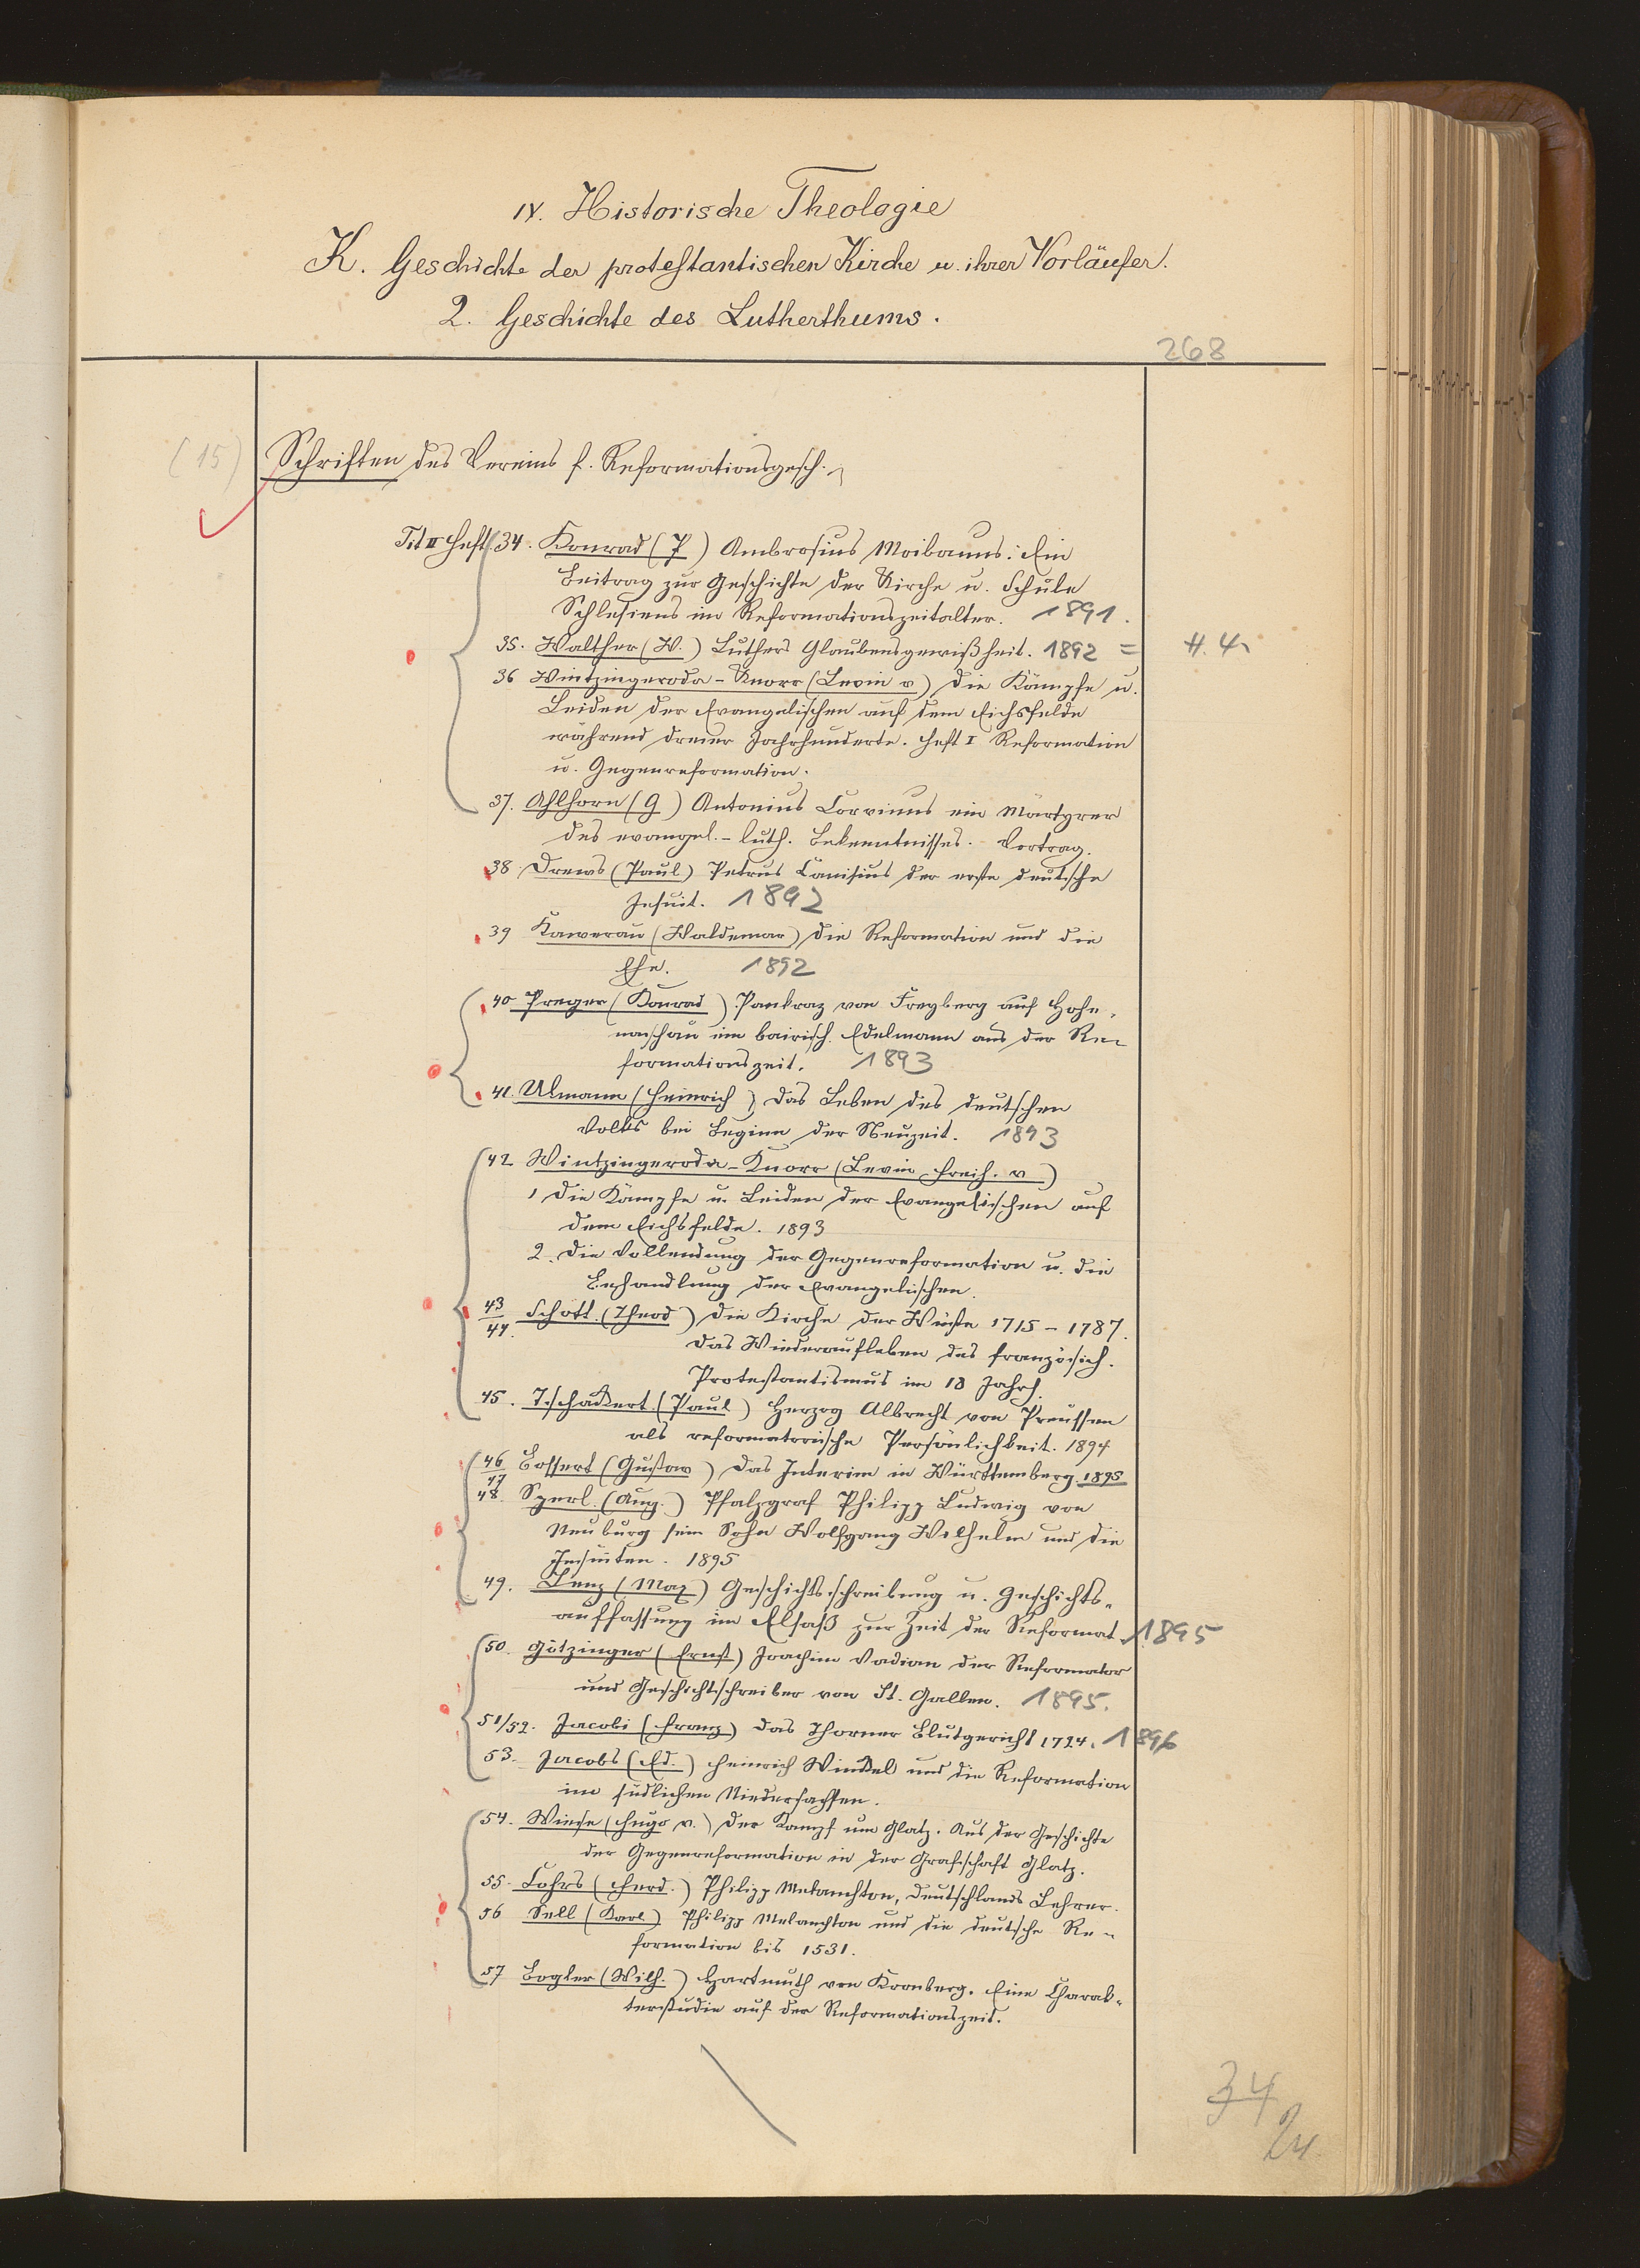 IV. Historische Theologie
K. Geschichte der protestantischen Kirche u. ihrer Vorläufer.
2. Geschichte des Lutherthums.
268
(15) Schriften des Vereins f. Reformationsgesch.
Heft 34. Konrad (P) Ambrosius Moibanus: Ein
Beitrag zur Geschichte der Kirche u. Schule
Schlesiens im Reformationszeitalter. 1891.
35. Walther (W.) Luthers Glaubensgewißheit. 1892 = H. 4
36 Wintzingeroda-Knorr (Levin v) Die Kämpfe u.
Leiden der Evangelischen auf dem Eichsfelde
während dreier Jahrhunderte. Heft I Reformation
u. Gegenreformation.
37. Uhlhorn (G) Antonius Corvinus ein Märtyrer
des evangel.-luth. Bekenntnisses. Vortrag.
38 Drews (Paul) Petrus Canisius der erste deutsche
Jesuit. 1892
39 Kawerau (Waldemar) Die Reformation und die
Ehe. 1892
40 Preger (Konrad) Pankraz von Freyberg auf Hohe-
naschau ein bairisch. Edelmann aus der Re-
formationszeit. 1893
41. Ulmann (Heinrich) Das Leben des deutschen
Volks bei Beginn der Neuzeit. 1893
42 Wintzingeroda-Knorr (Levin Freih. v)
1 Die Kämpfe u. Leiden der Evangelischen auf
dem Eichsfelde. 1893
2. Die Vollendung der Gegenreformation u. die
Behandlung der Evangelischen.
43/44. Schott. (Theod) Die Kirche der Wüste 1715-1787.
Das Wiederaufleben des französisch.
Protestantismus im 18 Jahrh.
45. Tschackert. (Paul) Herzog Albrecht von Preussen
als reformatorische Persönlichkeit. 1894
46/47 Bossert (Gustav) Das Interim in Württemberg. 1895
48. Sperl. (Aug.) Pfalzgraf Philipp Ludwig von
Neuburg sein Sohn Wolfgang Wilhelm und die
Jesuiten. 1895
49. Lenz (Max) Geschichtsschreibung u. Geschichts-
auffassung im Elsaß zur Zeit der Reformat. 1895
50. Götzinger (Ernst) Joachim Vadian der Reformator
und Geschichtschreiber von St. Gallen. 1895.
51/52. Jacobi (Franz) Das Thorner Blutgericht 1724. 1896
53. Jacobs (Ed.) Heinrich Winckel und die Reformation
im südlichen Niedersachsen.
54. Wiese (Hugo v.) Der Kampf um Glatz. Aus der Geschichte
der Gegenreformation in der Grafschaft Glatz.
55. Cohrs (Ferd.) Philipp Melanchton, Deutschlands Lehrer.
56 Sell (Karl) Philipp Melanchton und die deutsche Re-
formation bis 1531.
57 Bogler (Wilh.) Hartmuth von Kronberg. Eine Charak-
terstudie auf der Reformationszeit.
34
24